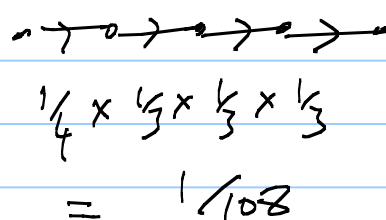 1/4 × 1/3 × 1/3 × 1/3
= 1/108